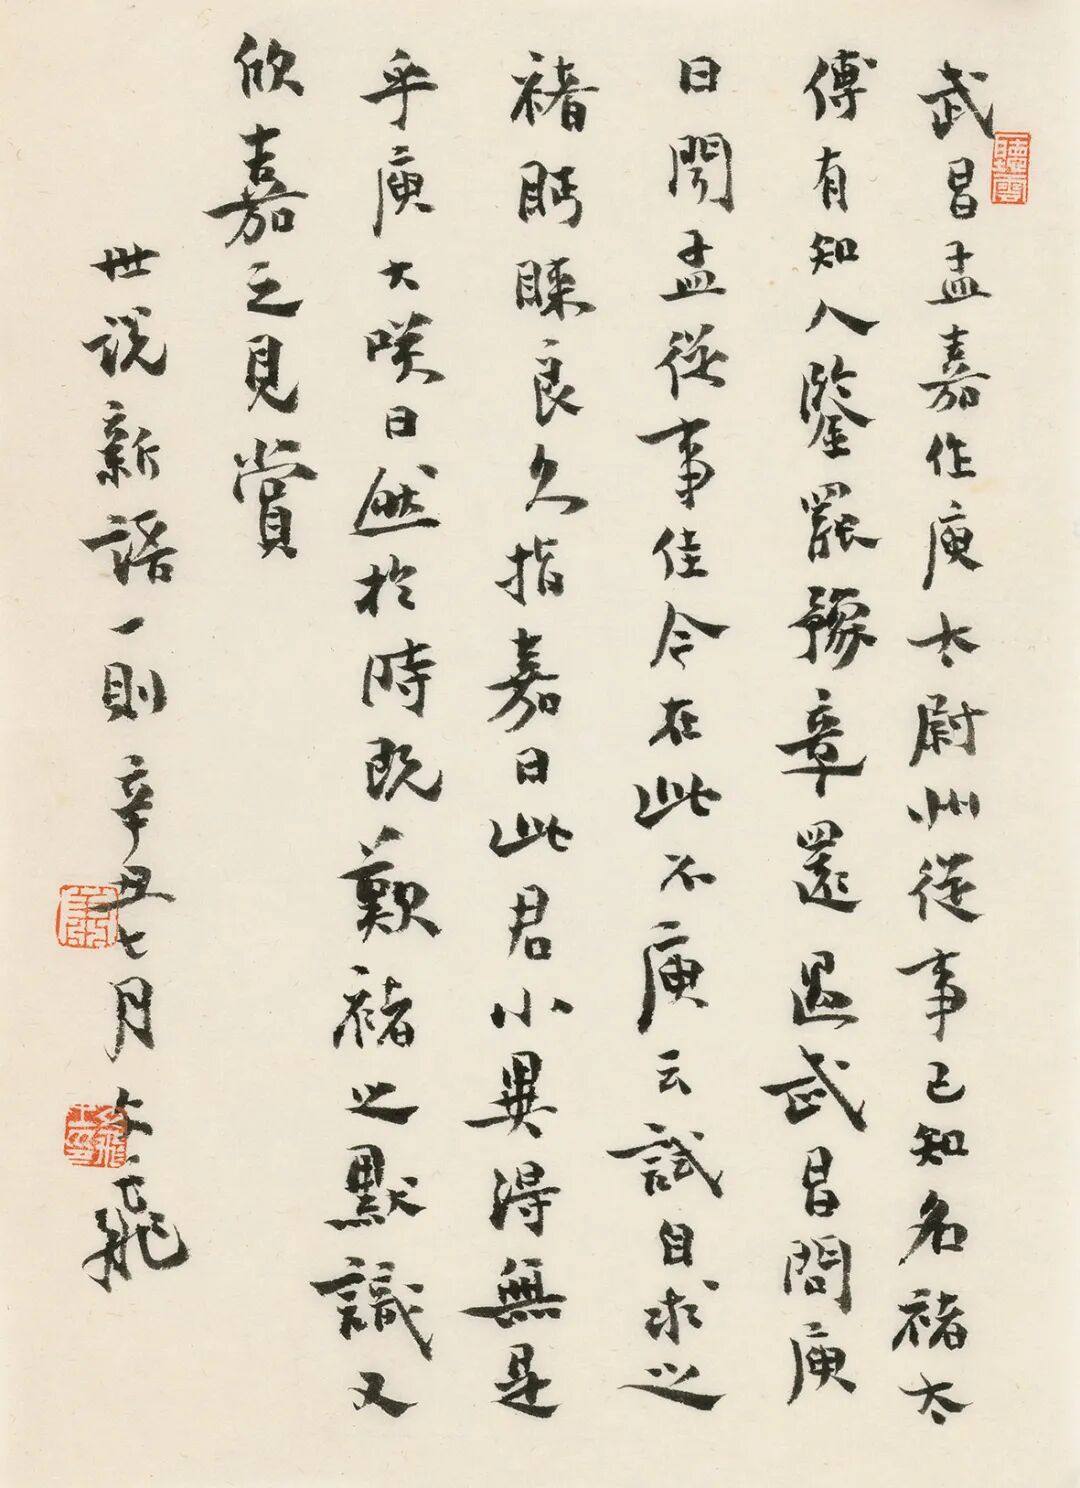 武昌孟嘉作庾太尉州從事已知名褚太
傅有知人鑒罷豫章還過武昌問庾
曰聞孟從事佳今在此不庾云試自求之
褚眄睞良久指嘉曰此君小異得無是
乎庾大咲曰然於時既歎褚之默識又
欣嘉之見賞
世說新語一則辛丑七月
聽雲